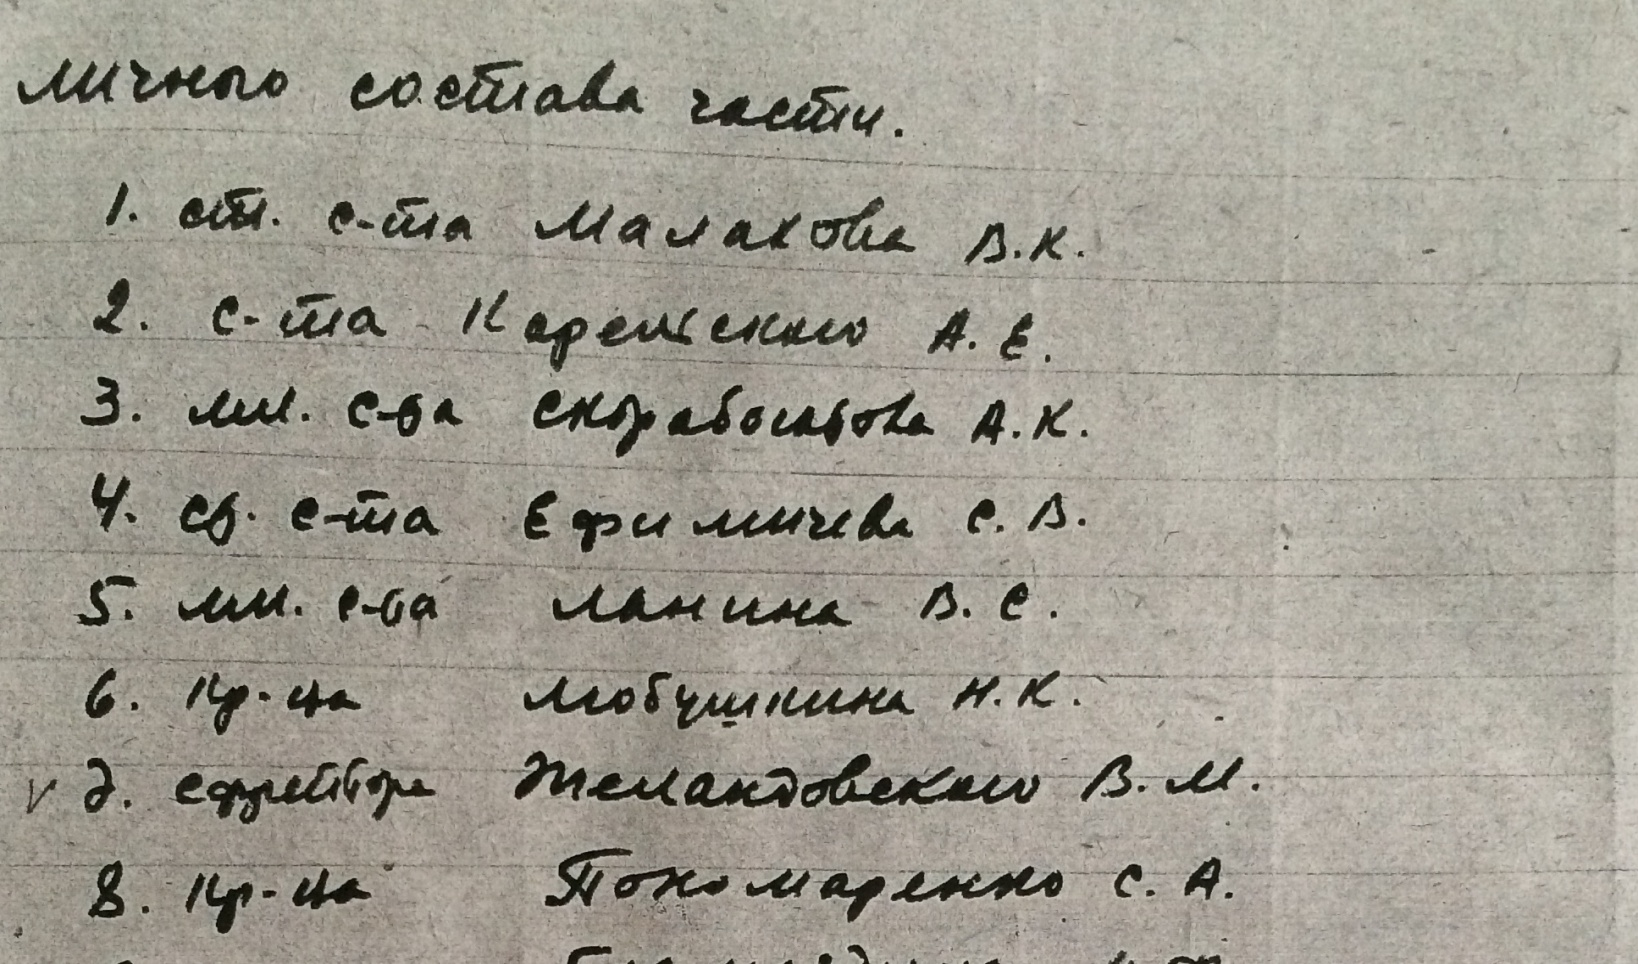 личного состава части.
1. ст. с-та Малахова В.К.
2. с-та Корецкого А.Е.
3. мл. с-та Скоробогатова А.К.
4. ст. с-та Ефимичева С.В.
5. мл. с-та Ланина В.С.
6. кр-ца Любушкина Н.К.
7. ефрейтора Желандовского В.М.
8. кр-ца Пономаренко С.А.